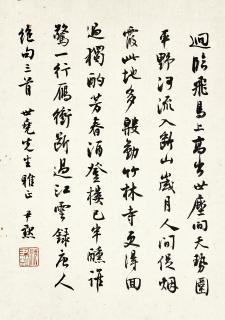 迥臨飛鳥上高出世塵間天勢圍
平野河流入斷山歲月人間促烟
霞此地多殷勤竹林寺更得回
過獨酌芳春酒登樓已半醺誰
驚一行雁衝斷過江雲錄唐人
絕句三首 世堯先生雅正 尹默